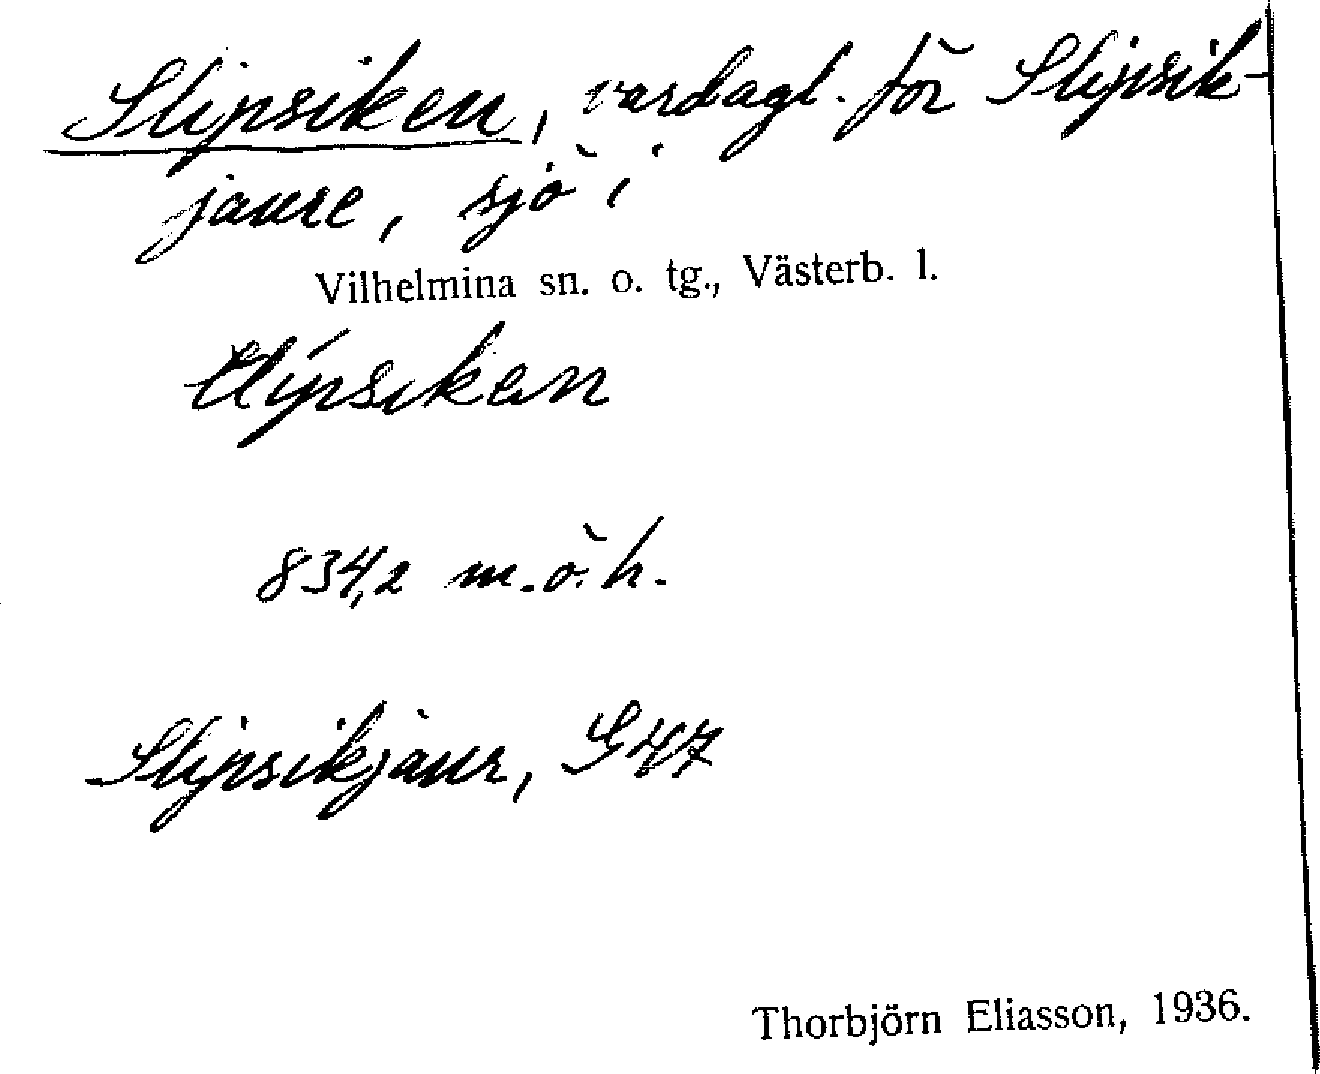 Slipsiken, vardagl. för Slipsik-
jaure, sjö i
Vilhelmina sn. o. tg., Västerb. l.
834,2 m.ö.h.
Slipsikjaur, G47
Thorbjörn Eliasson, 1936.